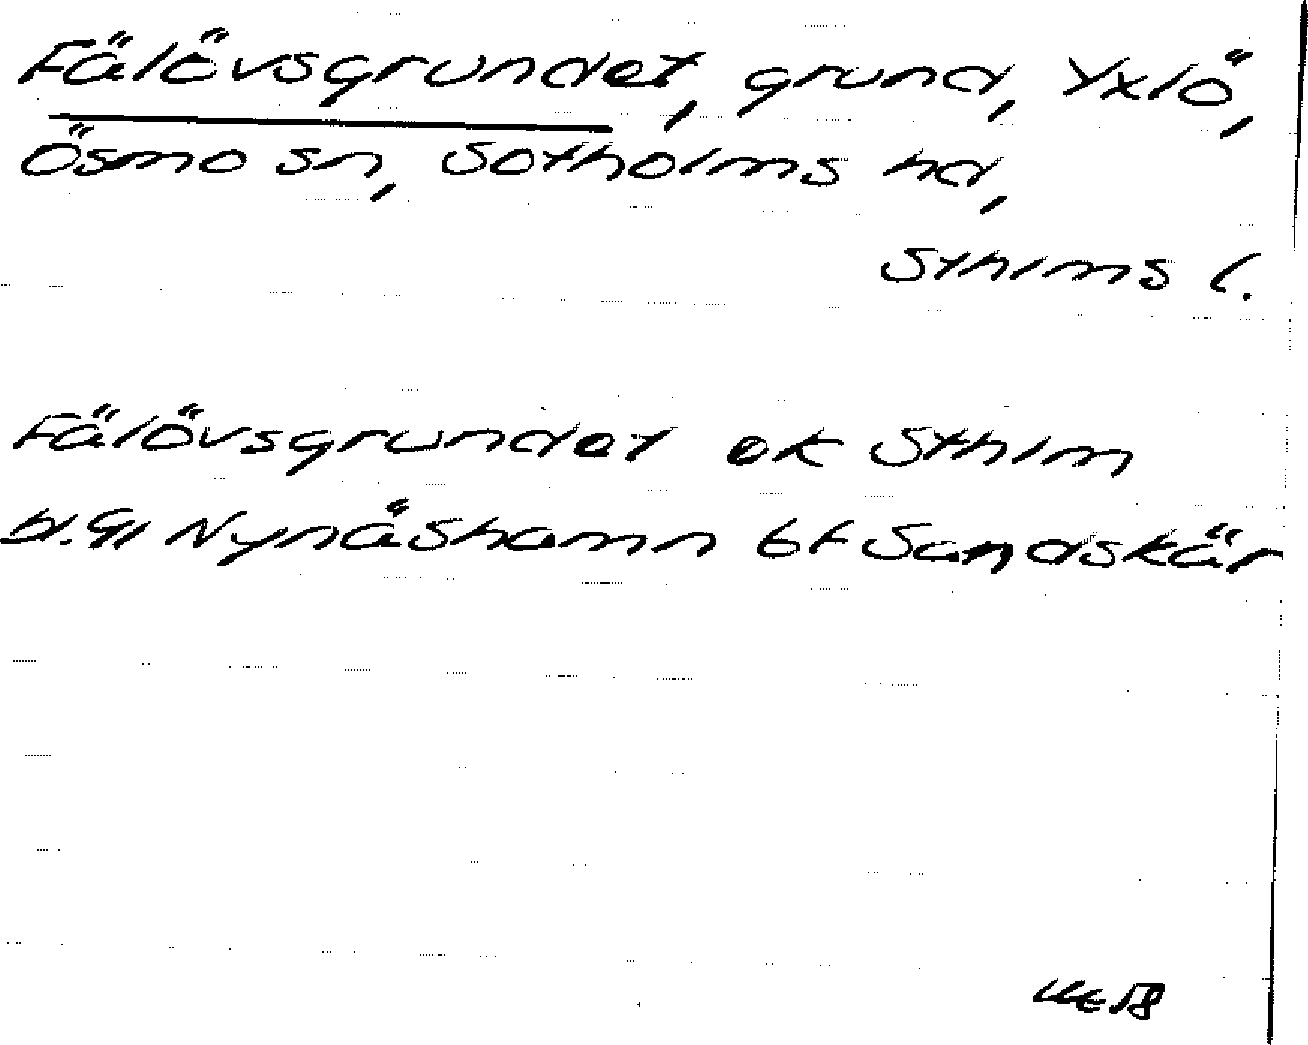 Fälövsgrundet, grund, Yxlö,
Ösmo sn, Sotholms hd,
Sthlms l.
Fälövsgrundet ek Sthlm
bl. 91 Nynäshamn bf Sandskär